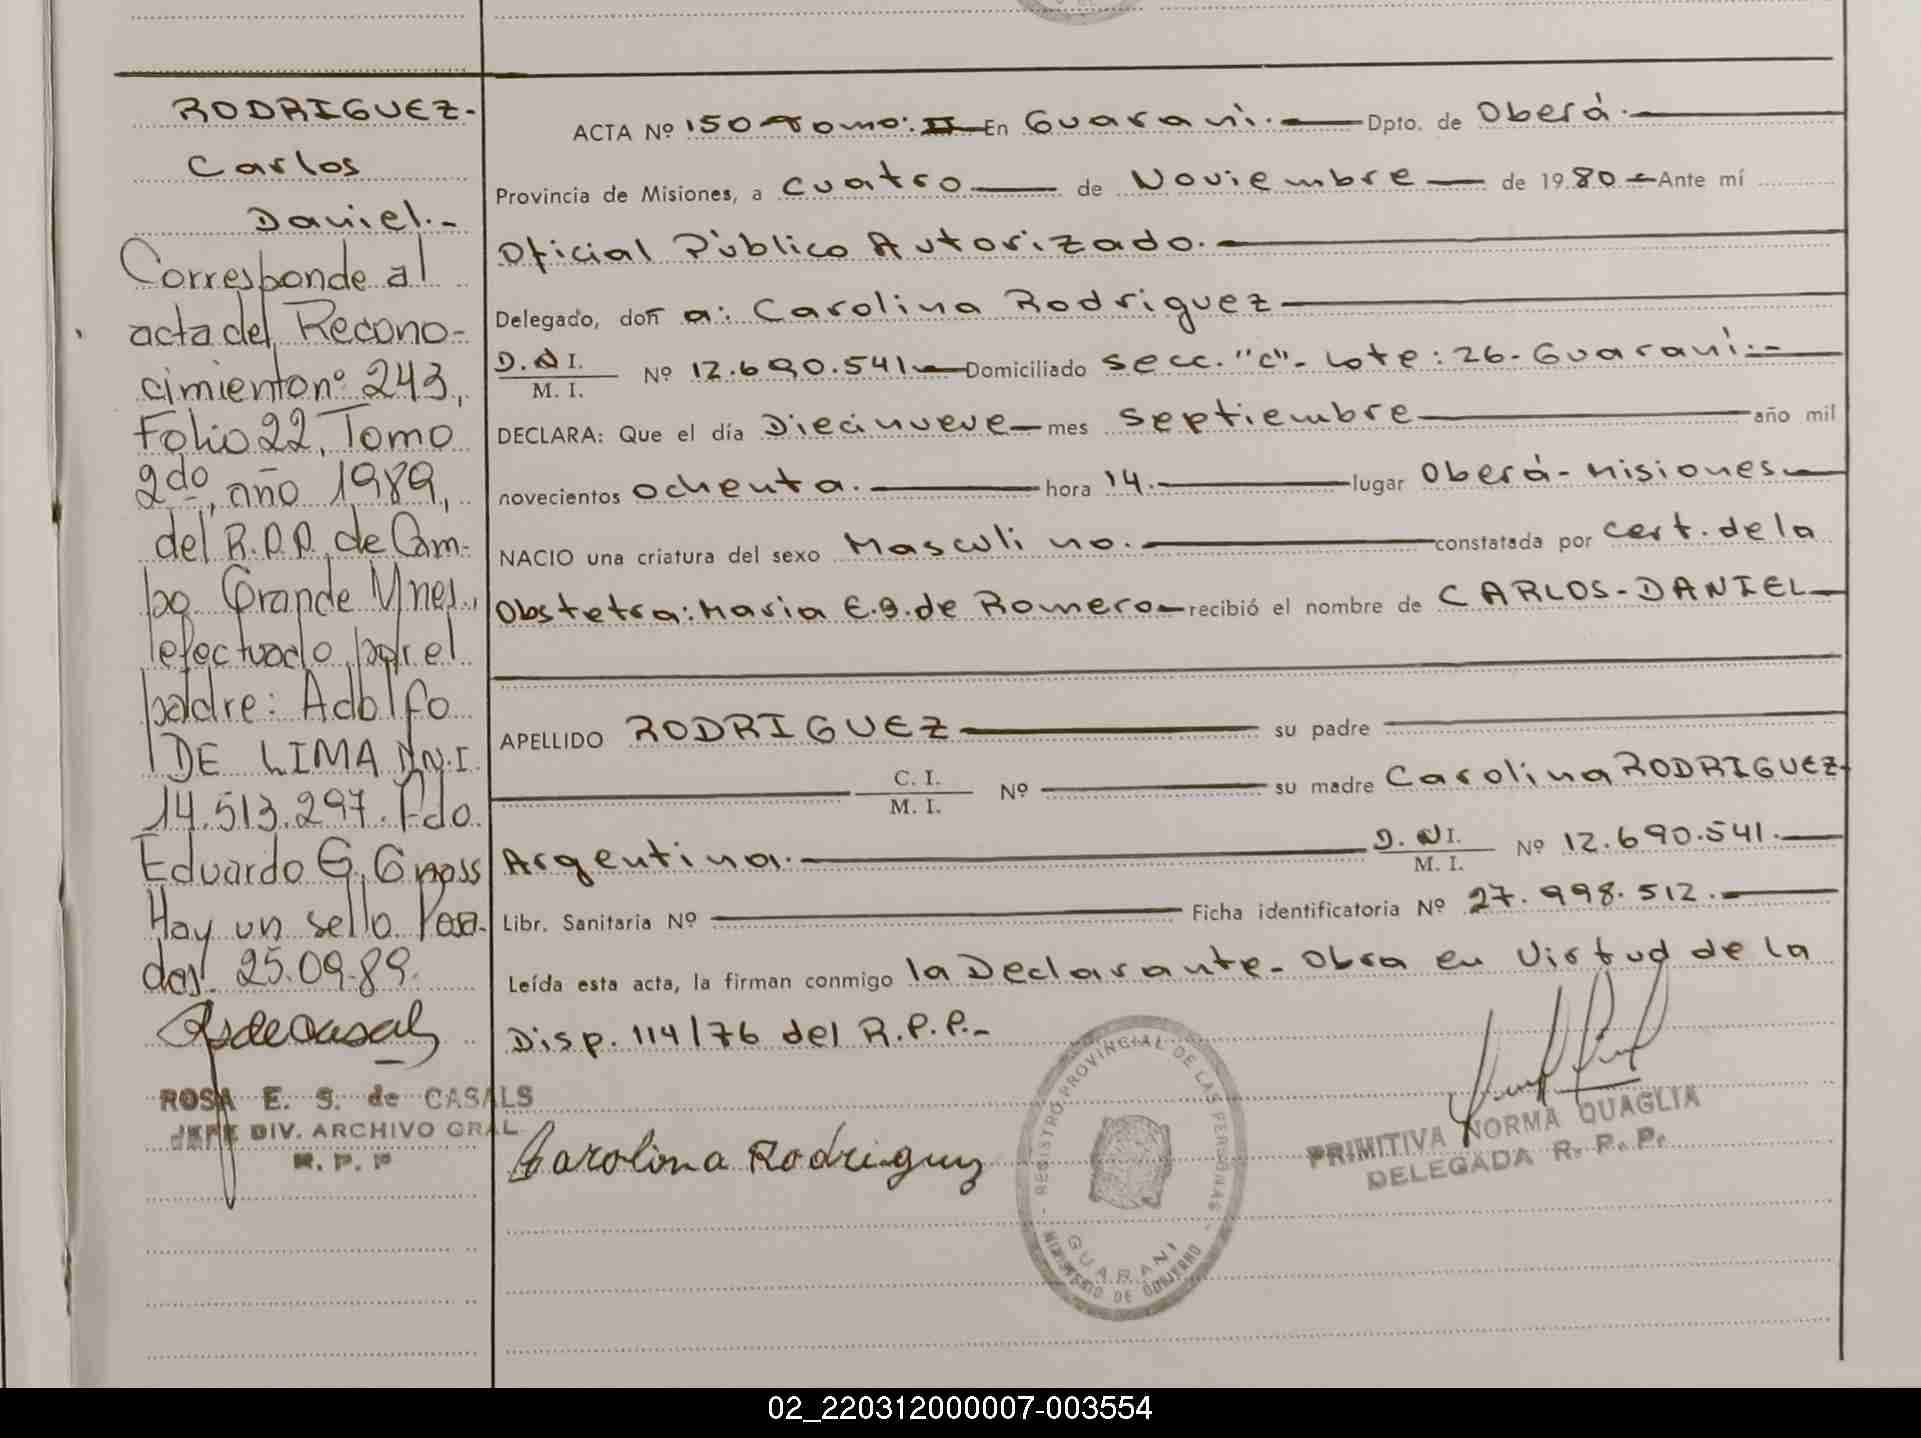 RODRIGUEZ.-
Carlos
Daniel.-
Corresponde al
acta del Recono-
cimiento nº 243,
Folio 22, Tomo
2do, año 1989,
del R.P.P. de Cam-
po Grande Mnes.,
efectuado por el
padre: Adolfo
DE LIMA D.N.I.
14.513.297. Fdo.
Eduardo G. Gross
Hay un sello Posa-
das. 25.09.89.
ROSA E. S. de CASALS
JEFE DIV. ARCHIVO GRAL
R. P. P
ACTA Nº 150 Tomo: II En Guarani. Dpto. de Oberá.
Provincia de Misiones, a cuatro de Noviembre de 1980 Ante mí
Oficial Público Autorizado.
Delegado, don a: Carolina Rodriguez
D. N I.
M. I.
Nº 12.690.541 Domiciliado secc. "c"- Lote: 26- Guarani.-
DECLARA: Que el día Diecinueve mes septiembre año mil
novecientos ochenta. hora 14. lugar Oberá-Misiones
NACIO una criatura del sexo Masculino. constatada por cert. de la
Obstetra: Maria E. de Romero recibió el nombre de CARLOS-DANIEL
APELLIDO RODRIGUEZ su padre
C. I.
M. I.
Nº su madre Carolina RODRIGUEZ
Argentina. D. N I.
M. I.
Nº 12.690.541.
Libr. Sanitaria Nº Ficha identificatoria Nº 27.998.512.
Leída esta acta, la firman conmigo la Declarante- Obra en Virtud de la
Disp. 114/76 del R.P.P.-
Carolina Rodriguez
REGISTRO PROVINCIAL DE LAS PERSONAS
GUARANI
MINISTERIO DE GOBIERNO
PRIMITIVA NORMA QUAGLIA
DELEGADA R. P. P.
02_220312000007-003554